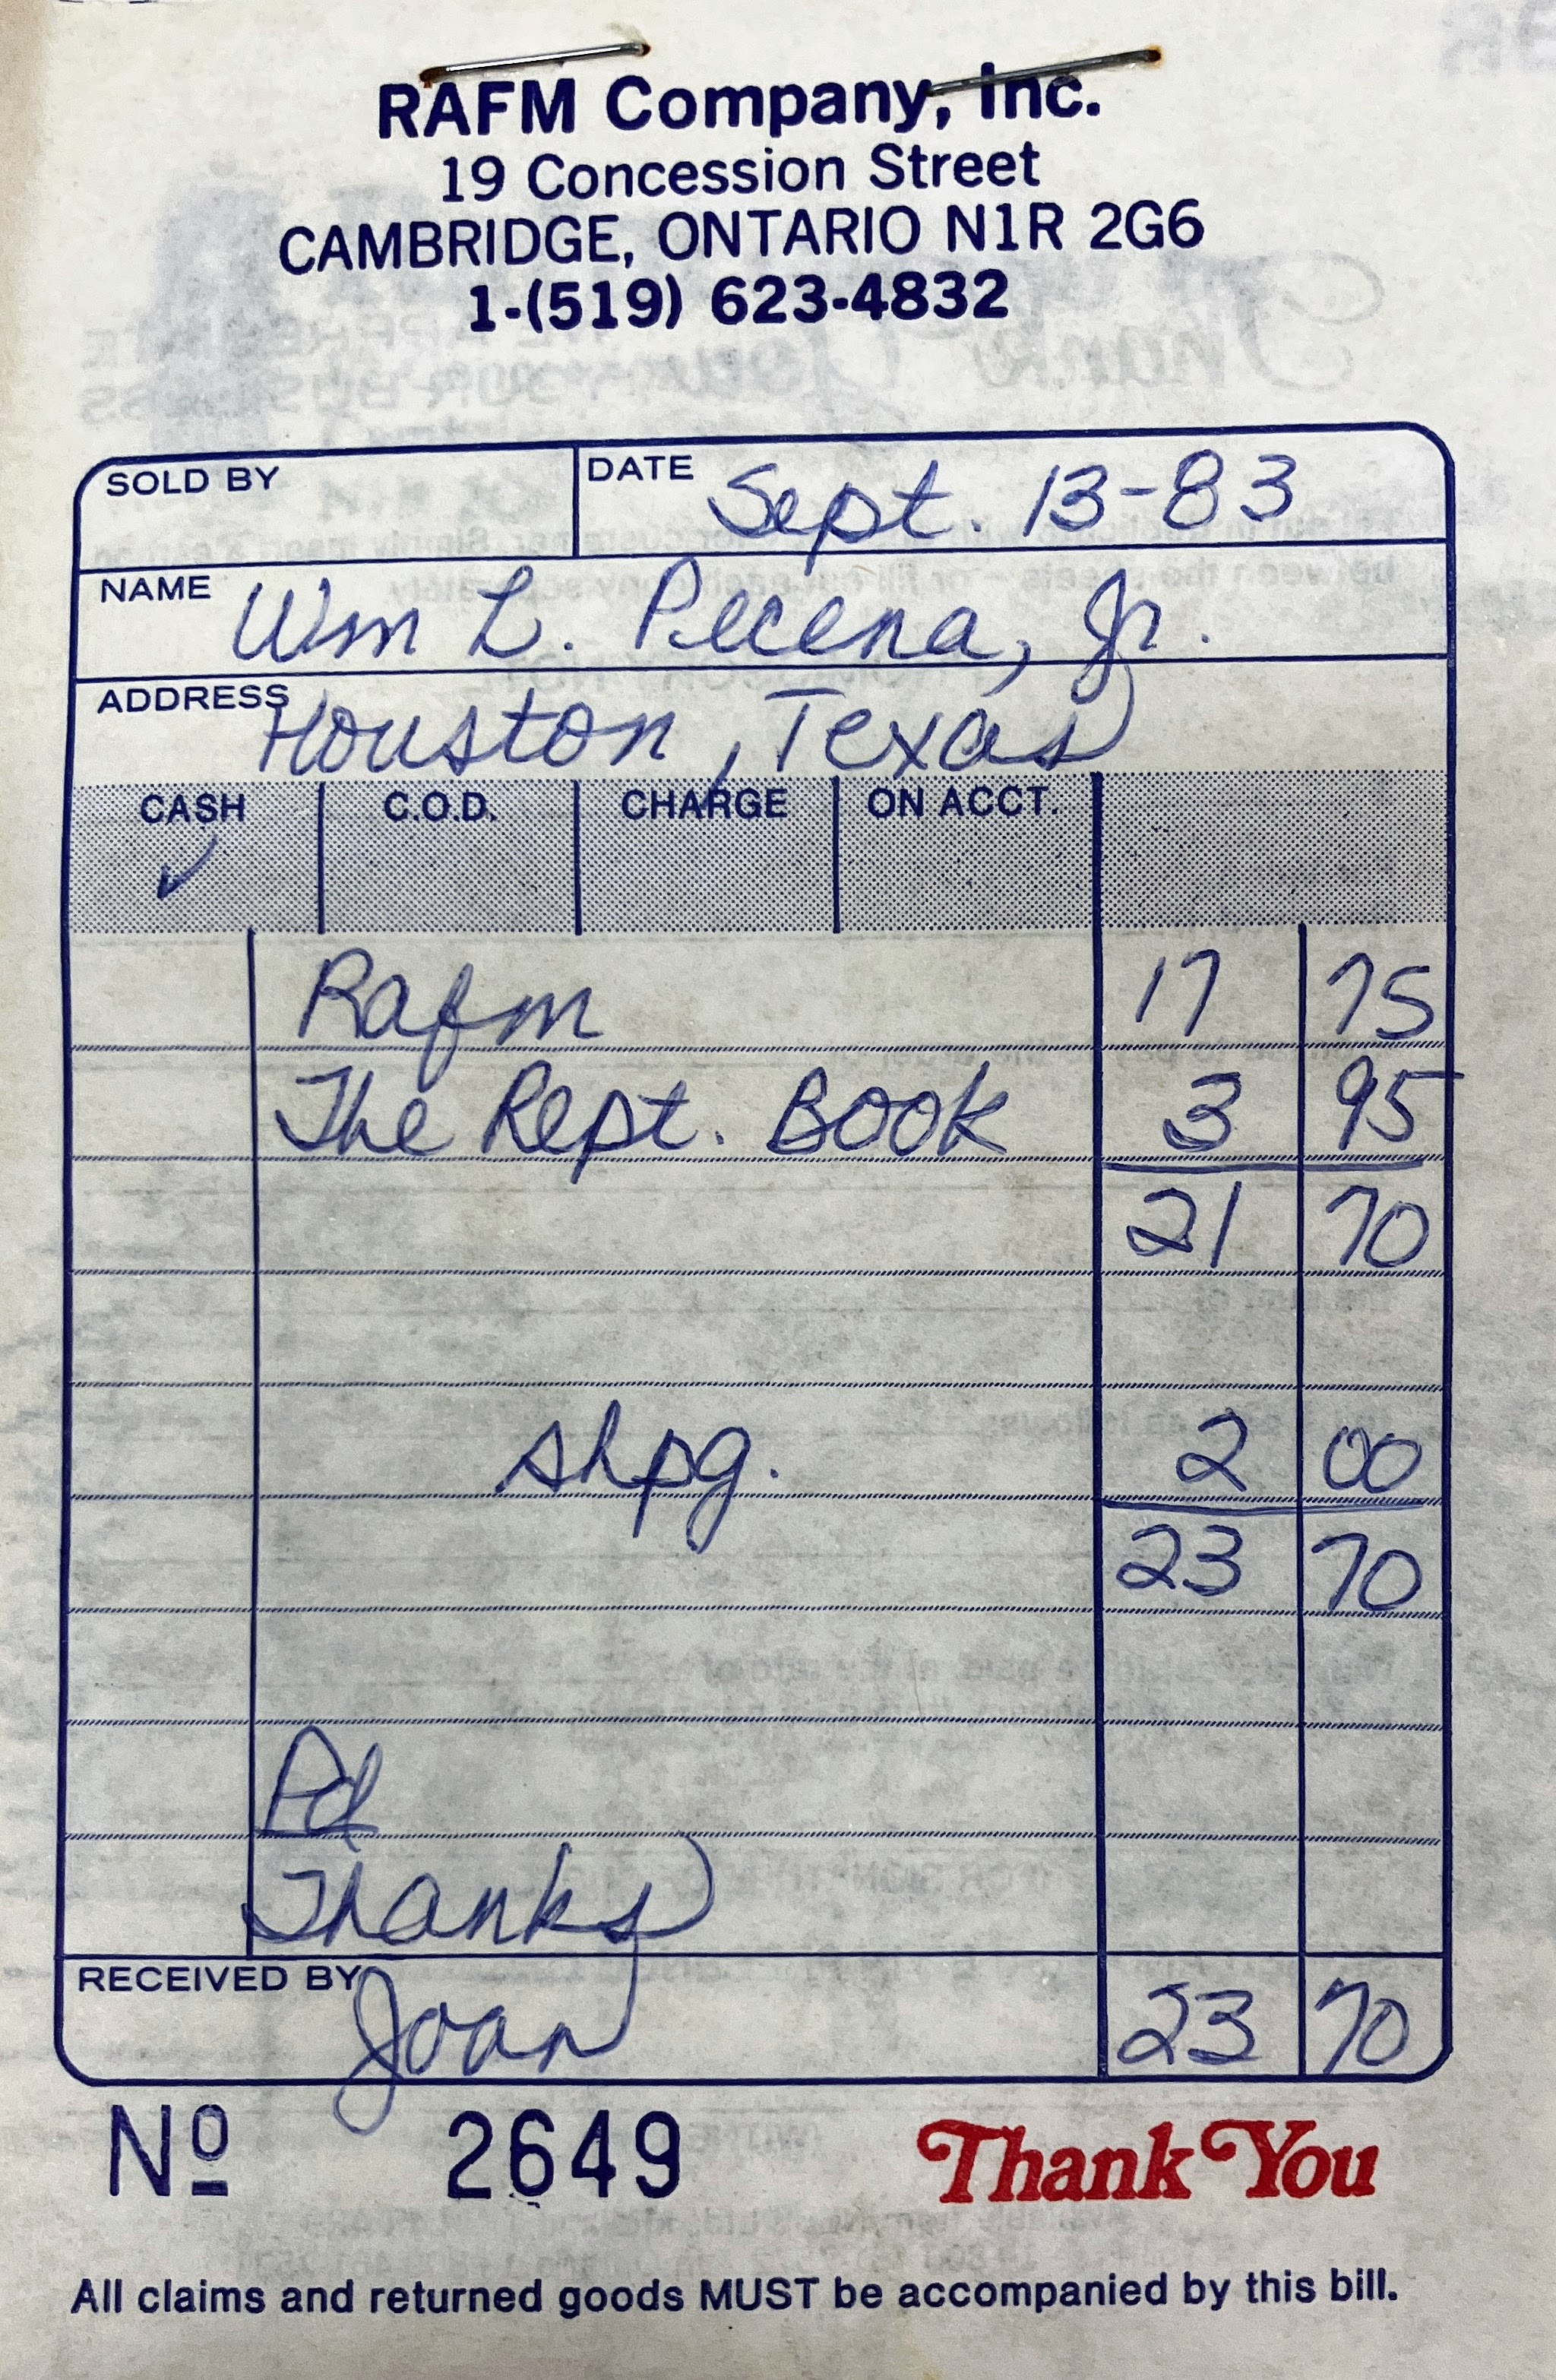 RAFM Company, Inc.
19 Concession Street
CAMBRIDGE, ONTARIO N1R 2G6
1-(519) 623-4832
SOLD BY DATE Sept. 13-83
NAME Wm L. Pecena, Jr.
ADDRESS Houston, Texas
CASH C.O.D. CHARGE ON ACCT.
✓
Rafm 17 75
The Rept. Book 3 95
21 70
shpg. 2 00
23 70
Pd
Thanks
RECEIVED BY Joan 23 70
Nº 2649 Thank You
All claims and returned goods MUST be accompanied by this bill.